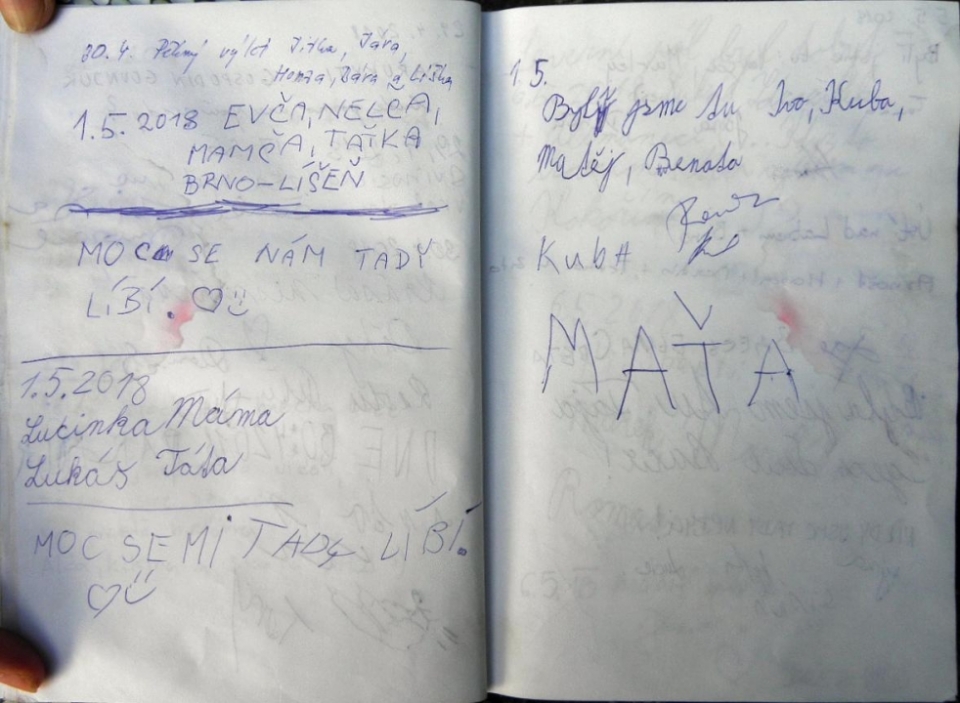 30.4. Pěkný výlet Jitka, Jára,
Honza, Bára a Liška
1.5. 2018 EVČA, NELČA,
MAMČA, TAŤKA
BRNO-LÍŠEŇ
MOC SE NÁM TADY
LÍBÍ. ♡
1.5.2018
Lucinka Máma
Lukáš Táta
MOC SE MI TADY LÍBÍ.
♡
1.5.
Byly jsme tu Ivo, Kuba,
Matěj, Renata
Kuba
MAŤA